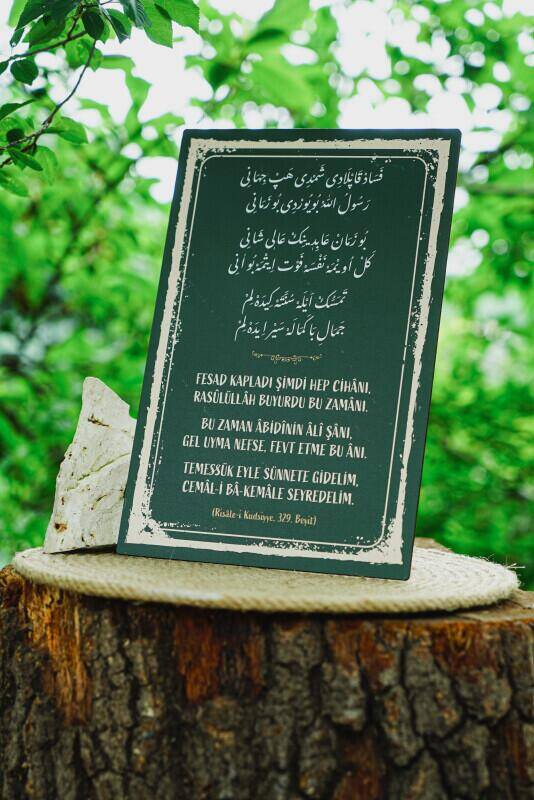 فَسَادْ قَاپْلَادِی شِمْدِی هَپْ جِهَانِی
رَسُولُ اللّٰهْ بُویُورْدِی بُو زَمَانِی
بُو زَمَانْ عَابِدِینِڭْ عَالِی شَانِی
كَلْ اُویْمَهْ نَفْسَهْ فَوْتْ اِیتْمَهْ بُو اٰنِی
تَمَسُّكْ اَیْلَهْ سُنَّتَهْ كِیدَهْ لِمْ
جَمَالِ بَا كَمَالَهْ سَیْرِ ایدَهْ لِمْ
FESAD KAPLADI ŞİMDİ HEP CİHÂNI,
RASÜLÜLLÂH BUYURDU BU ZAMÂNI.
BU ZAMAN ÂBİDÎNİN ÂLÎ ŞÂNI,
GEL UYMA NEFSE, FEVT ETME BU ÂNI.
TEMESSÜK EYLE SÜNNETE GİDELİM,
CEMÂL-İ BÂ-KEMÂLE SEYREDELİM.
(Risâle-i Kudsiyye, 329. Beyit)